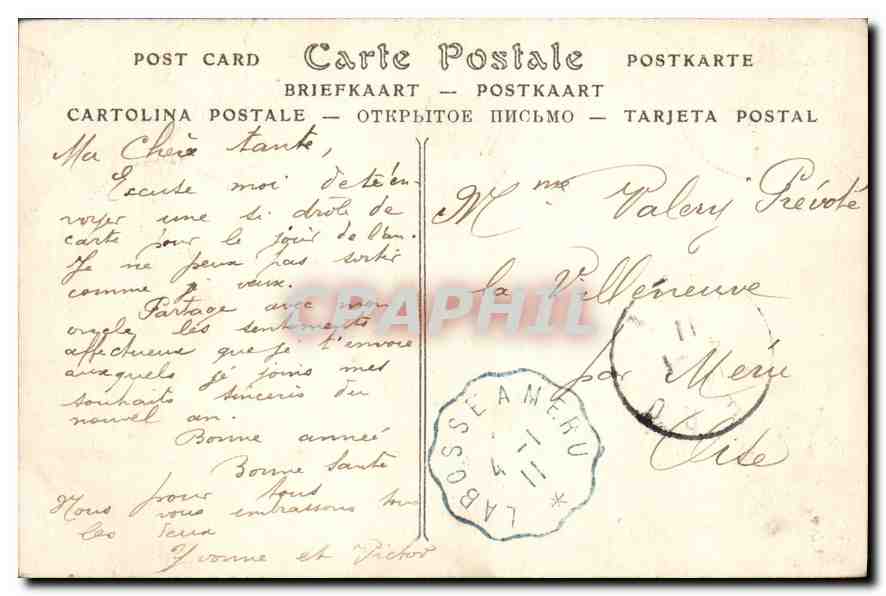 POST CARD Carte Postale POSTKARTE
BRIEFKAART — POSTKAART
CARTOLINA POSTALE — ОТКРЫТОЕ ПИСЬМО — TARJETA POSTAL
Ma Chère tante,
Excuse moi de t'en-
voyer une si drôle de
carte pour le jour de l'an.
Je ne peux pas sortir
comme je veux.
Partage avec mon
oncle les sentiments
affectueux que je t'envoie
auxquels je joins mes
souhaits sincères du
nouvel an.
Bonne année
Bonne Santé
Nous vous embrassons tous
les deux
pour tous
Yvonne et Victor
Mme Valery Prévoté
la Villeneuve
par Méru
Oise
LABOSSE A MERU
4 -1
11
11
CPAPHIL